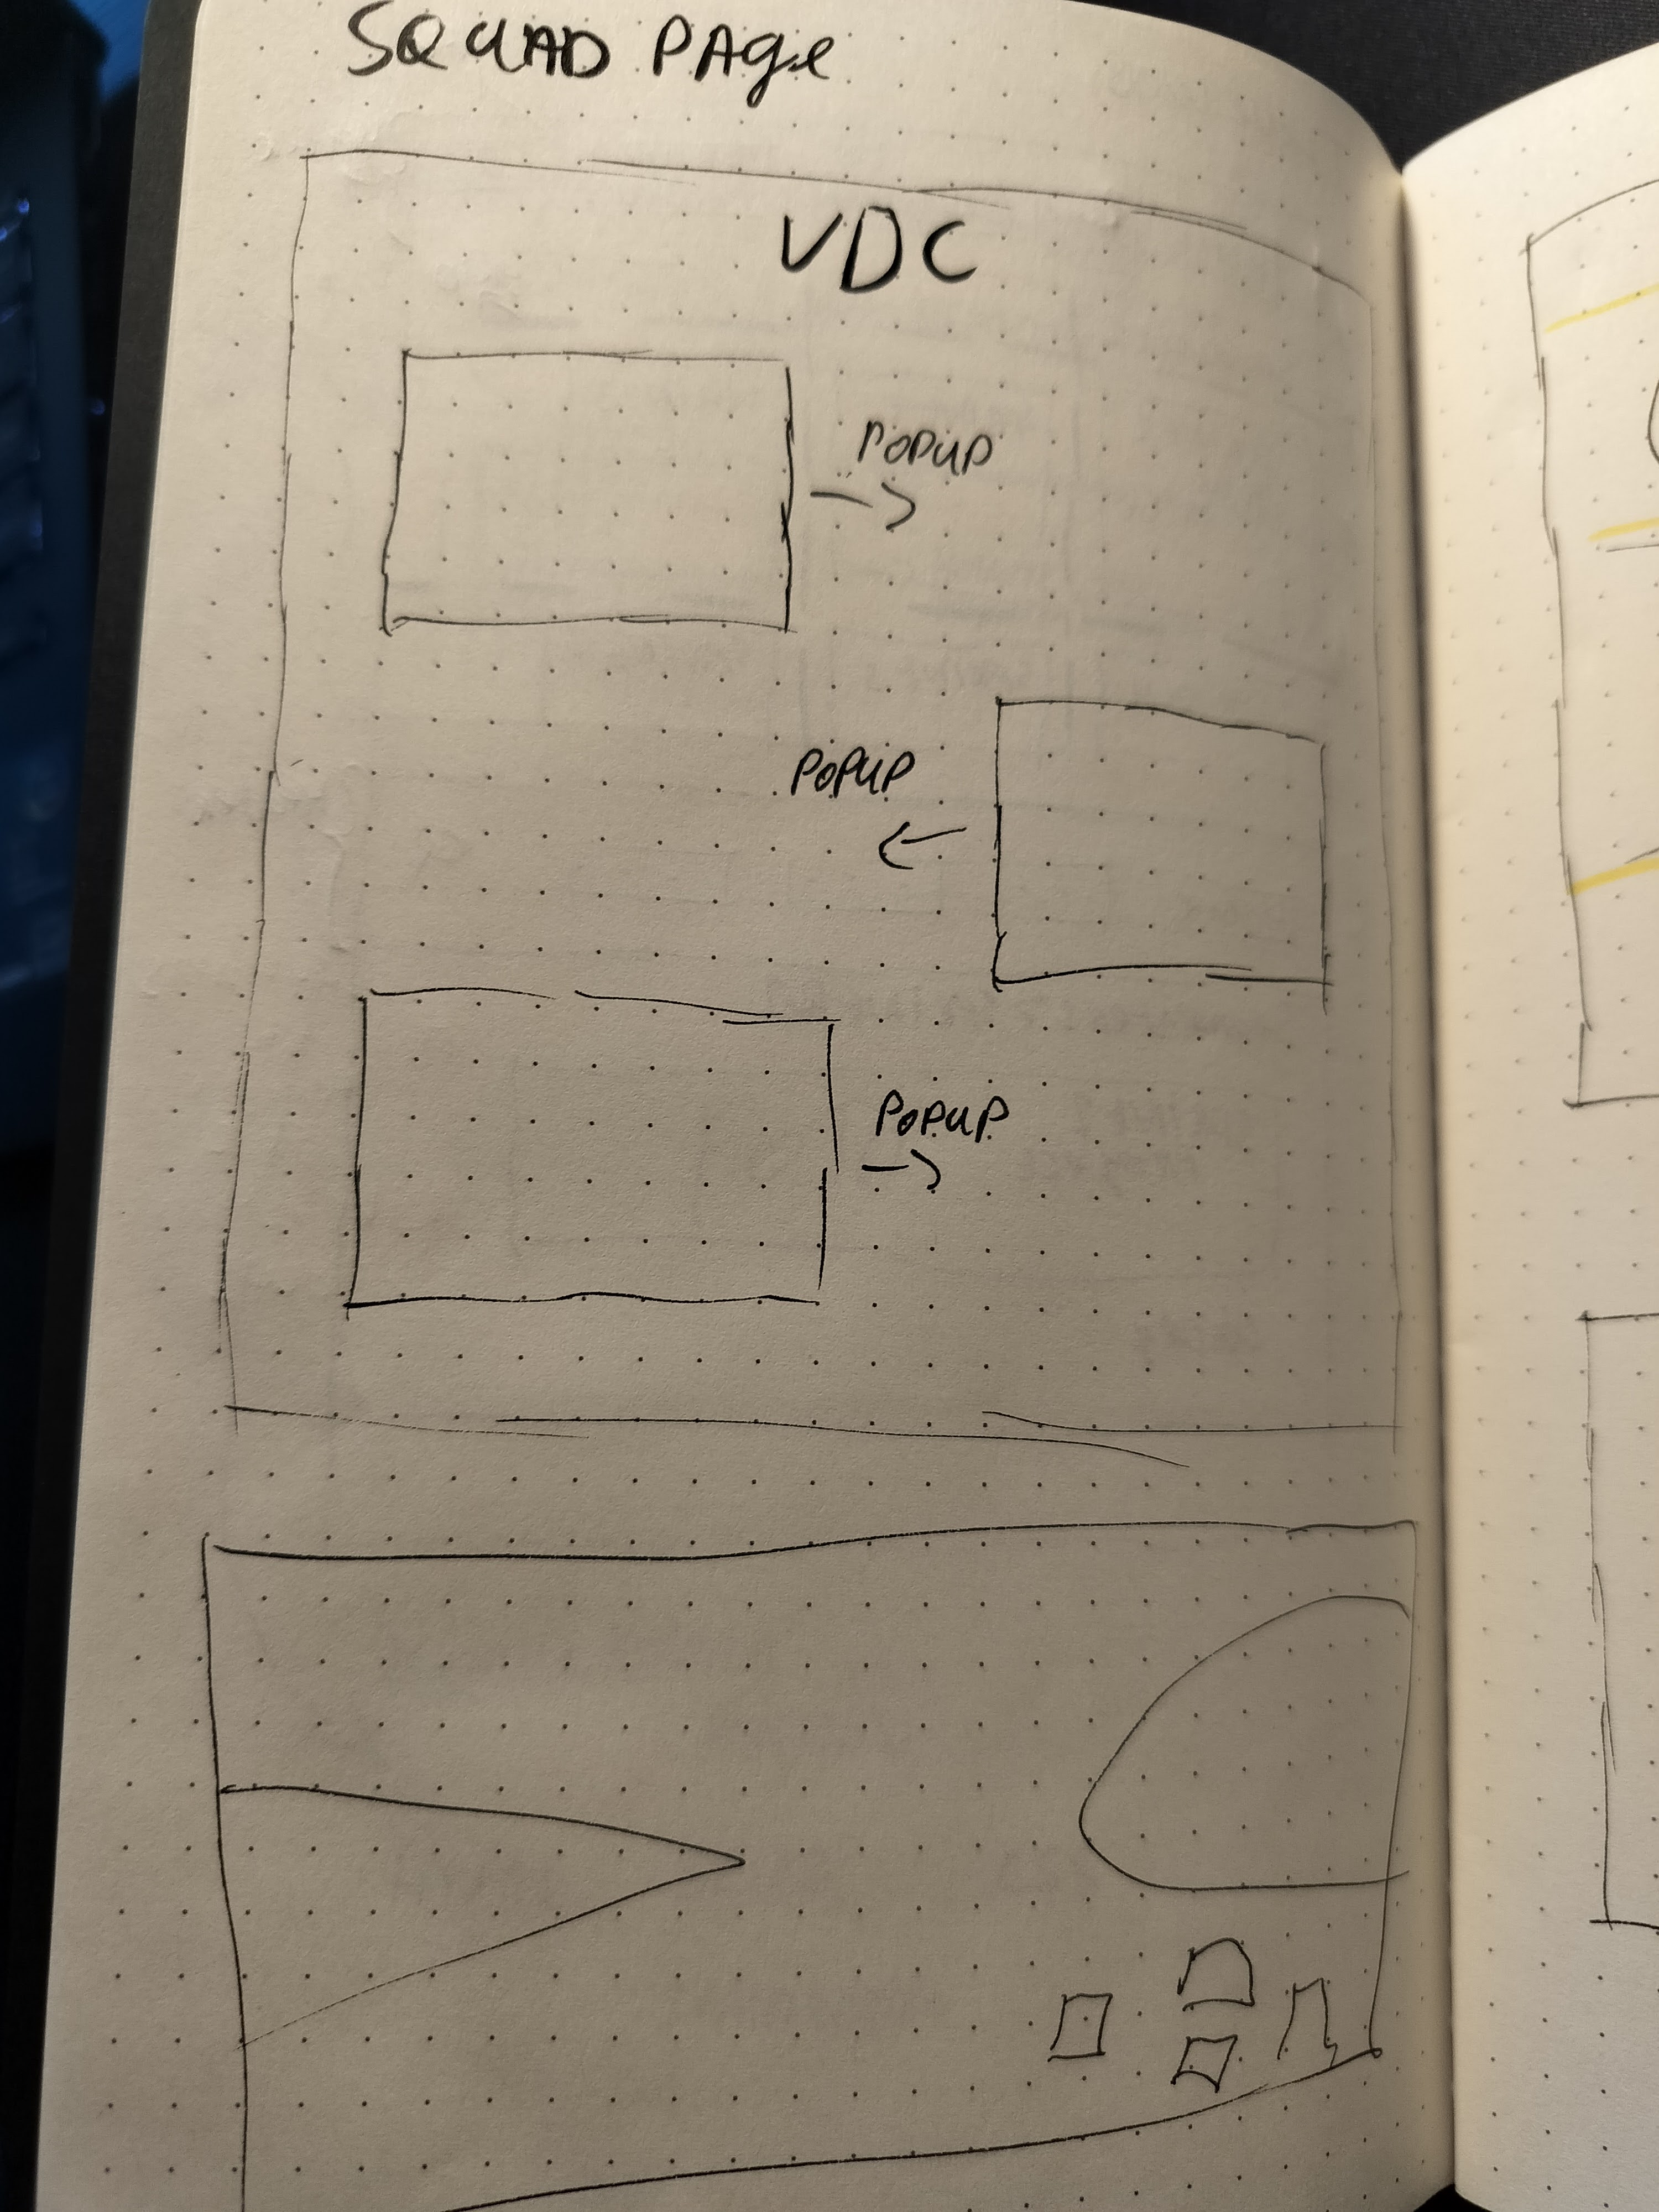 SQUAD PAge
VDC
POPUP
POPUP
POPUP